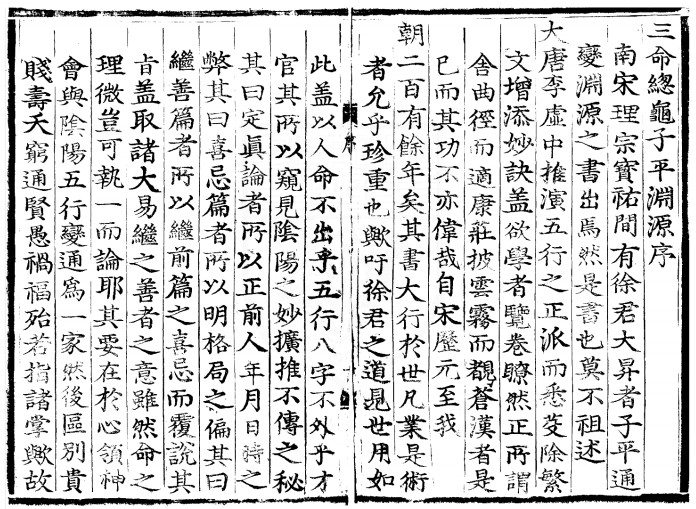 三命總龜子平淵源序
南宋理宗寶祐間有徐君大昇者子平通
變淵源之書出焉然是書也莫不祖述
大唐李虛中推演五行之正派而悉芟除繁
文增添妙訣盖欲學者覽卷瞭然正所謂
舍曲徑而適康莊披雲霧而覩蒼漢者是
已而其功不亦偉哉自宋歷元至我
朝二百有餘年矣其書大行於世凡業是術
者允乎珍重也歟吁徐君之道見世用如
序
此盖以人命不出乎五行八字不外乎才
官其所以窺見陰陽之妙擴推不傳之秘
其曰定眞論者所以正前人年月日時之
弊其曰喜忌篇者所以明格局之偏其曰
繼善篇者所以繼前篇之喜忌而覆說其
㫖盖取諸大易繼之善者之意雖然命之
理微豈可執一而論耶其要在於心領神
會與陰陽五行變通爲一家然後區別貴
賤壽夭窮通賢愚禍福殆若指諸掌歟故